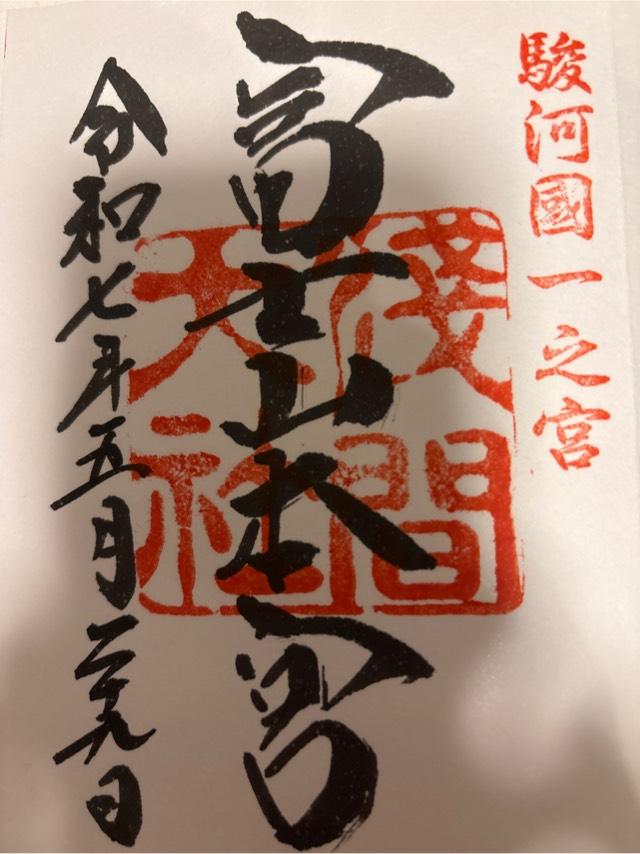 駿河國一之宮
富士山本宮
淺間大社
令和七年五月二十九日